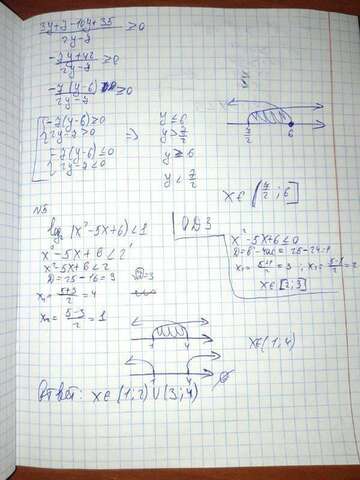 3y+7-10y+35 / 2y-7 ≥0
-7y+42 / 2y-7 ≥0
-7(y-6) / 2y-7 ≥0
-7(y-6)≥0
2y-7>0
=>
y≤6
y>7/2
-7(y-6)≤0
2y-7<0
y≥6
y<7/2
7/2 6
x∈(7/2;6]
N5
log₂(x²-5x+6)<1
x²-5x+6<2¹
x²-5x+6<2
D=25-16=9
√D=3
x₁=5+3/2=4
x₂=5-3/2=1
ОДЗ
x²-5x+6≤0
D=b²-4ac=25-24=1
x₁=5+1/2=3; x₂=5-1/2=2
x∈[2;3]
1 4
x∈(1;4)
Ответ: x∈(1;2)∪(3;4)